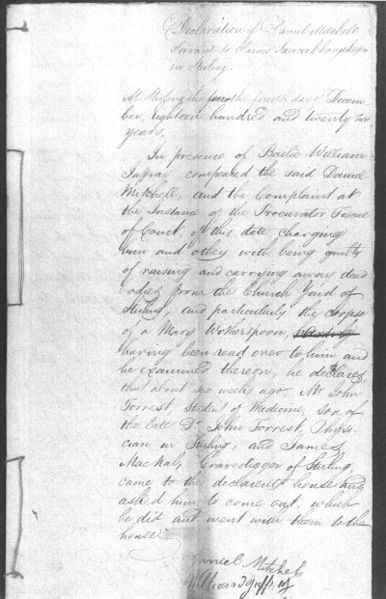 Declaration of Daniel Mitchell
Servant to James
in Stirling.
At Stirling the fourth day of Decem
ber, eighteen hundred and twenty two
years,
In presence of Bailie William
Jaffray compeared the said Daniel
Mitchell, and the Complaint at
the Instance of the Procurator Fiscal
of Court, of this date charging
him and others with being guilty
of raising and carrying away dead
bodies from the Church Yard of
Stirling, and particularly the corpse
of a Mary Wotherspoon,
having been read over to him and
he examined thereon, he declares,
that about six weeks ago Mr John
Forrest, Student of Medicine, son of
the late Dr John Forrest, Physi
cian in Stirling, and James
McNab, Gravedigger of Stirling,
came to the declarants house and
asked him to come out, which
he did and went with them to the
house
Daniel Mitchel
William Jaffray